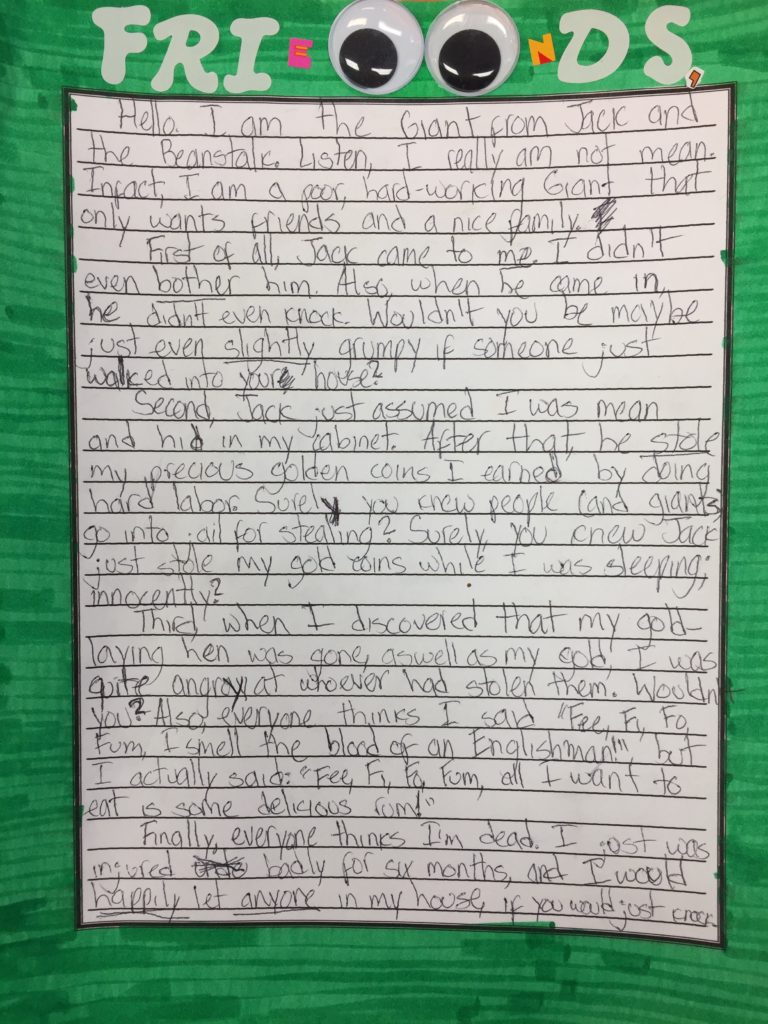 FRIENDS,
Hello. I am the Giant from Jack and
the Beanstalk. Listen, I really am not mean.
Infact, I am a poor, hard-working Giant that
only wants friends and a nice family.
First of all, Jack came to me. I didn't
even bother him. Also, when he came in,
he didn't even knock. Wouldn't you be maybe
just even slightly grumpy if someone just
walked into your house?
Second, Jack just assumed I was mean
and hid in my cabinet. After that, he stole
my precious golden coins I earned by doing
hard labor. Surely you knew people (and giants)
go into jail for stealing? Surely, you knew Jack
just stole my gold coins while I was sleeping;
innocently?
Third, when I discovered that my gold-
laying hen was gone, aswell as my gold, I was
quite angry at whoever had stolen them. Wouldn't
you? Also, everyone thinks I said "Fee, Fi, Fo,
Fum, I smell the blood of an Englishman!", but
I actually said: "Fee, Fi, Fo, Fum, all I want to
eat is some delicious rum!"
Finally, everyone thinks I'm dead. I just was
injured badly for six months, and I would
happily let anyone in my house, if you would just knock.